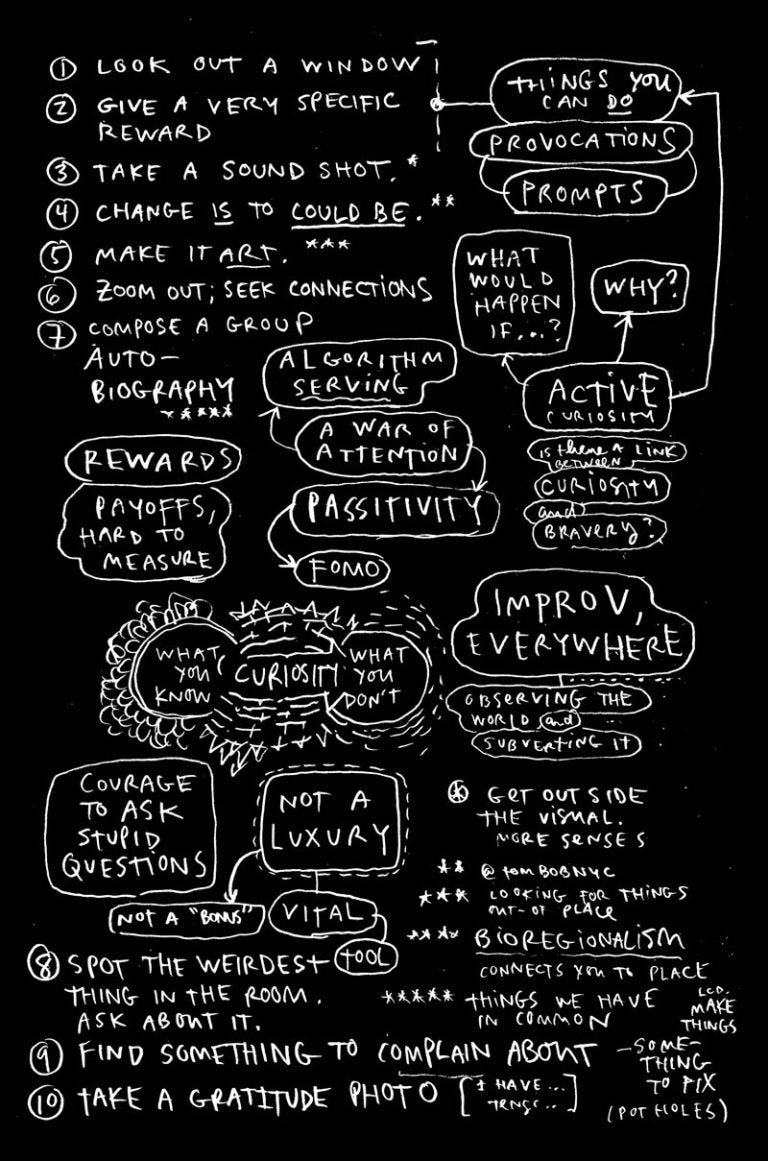 ① LOOK OUT A WINDOW
② GIVE A VERY SPECIFIC
REWARD
③ TAKE A SOUND SHOT. *
④ CHANGE IS TO COULD BE. **
⑤ MAKE IT ART. ***
⑥ ZOOM OUT; SEEK CONNECTIONS
⑦ COMPOSE A GROUP
AUTO-
BIOGRAPHY
*****
THINGS YOU
CAN DO
PROVOCATIONS
PROMPTS
WHAT
WOULD
HAPPEN
IF...?
WHY?
ACTIVE
CURIOSITY
IS THERE A LINK
BETWEEN
CURIOSITY
and
BRAVERY?
ALGORITHM
SERVING
A WAR OF
ATTENTION
PASSITIVITY
FOMO
REWARDS
PAYOFFS,
HARD TO
MEASURE
WHAT
YOU
KNOW
CURIOSITY
WHAT
YOU
DON'T
IMPROV,
EVERYWHERE
OBSERVING THE
WORLD and
SUBVERTING IT
COURAGE
TO ASK
STUPID
QUESTIONS
NOT A
LUXURY
NOT A "BONUS"
VITAL
TOOL
* GET OUTSIDE
THE VISUAL.
MORE SENSES
** @TOMBOBNYC
*** LOOKING FOR THINGS
OUT-OF PLACE
**** BIOREGIONALISM
CONNECTS YOU TO PLACE
***** THINGS WE HAVE
IN COMMON
LCD.
MAKE
THINGS
⑧ SPOT THE WEIRDEST
THING IN THE ROOM.
ASK ABOUT IT.
⑨ FIND SOMETHING TO COMPLAIN ABOUT
—SOME-
THING
TO FIX
(POT HOLES)
⑩ TAKE A GRATITUDE PHOTO
[I HAVE...
]